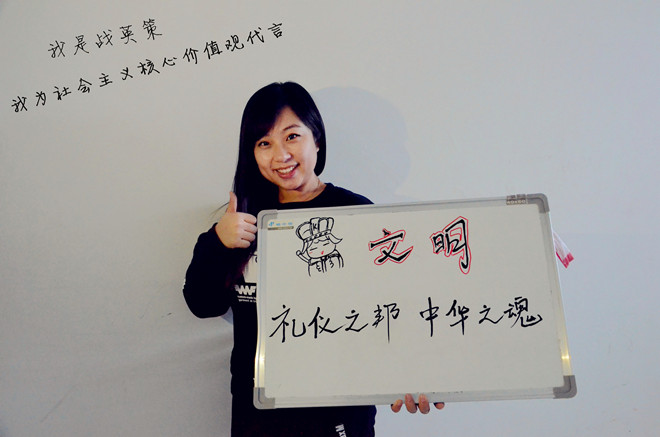 我是战英策
我为社会主义核心价值观代言
文明
礼仪之邦 中华之魂